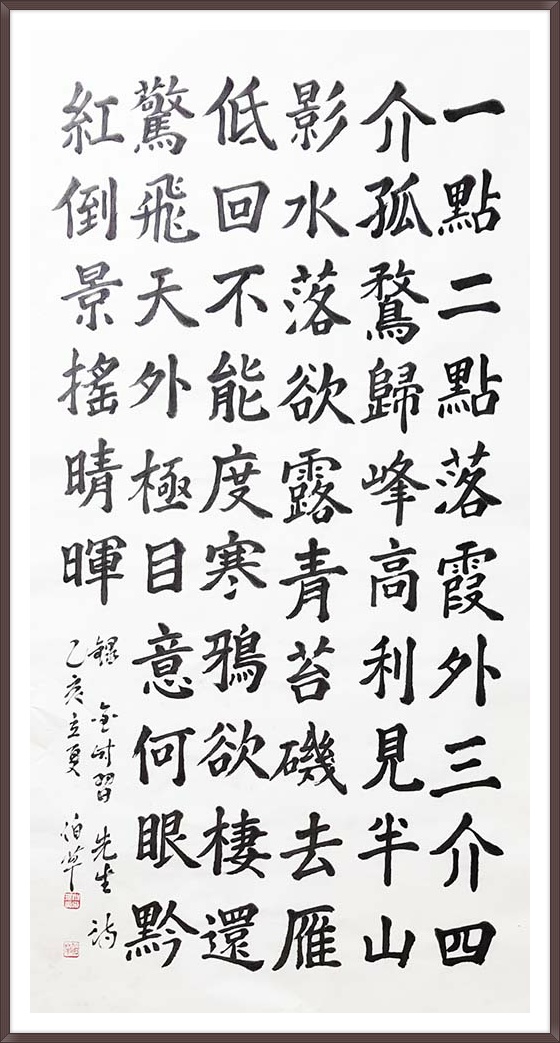 一點二點落霞外三介四
介孤鶩歸峰高利見半山
影水落欲露青苔磯去雁
低回不能度寒鴉欲棲還
驚飛天外極目意何眼黔
紅倒景搖晴暉
錄金時習先生詩
乙亥立夏